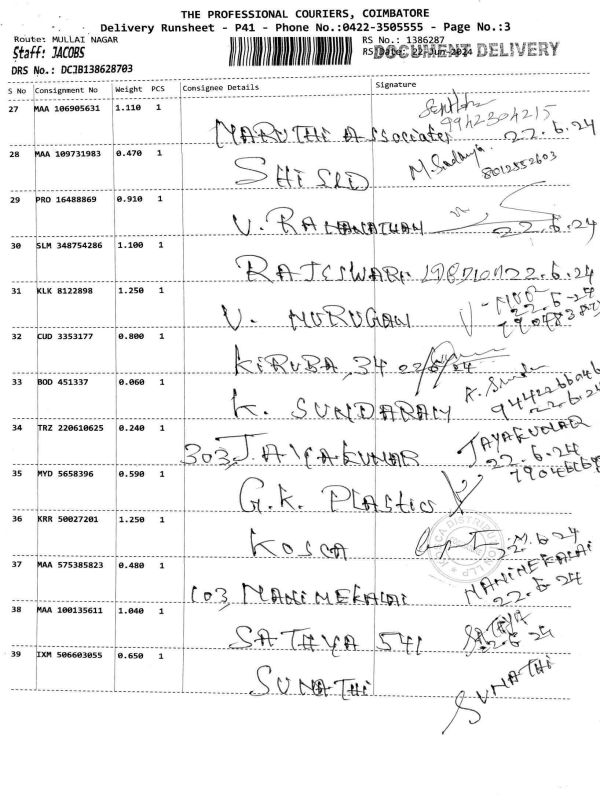 THE PROFESSIONAL COURIERS, COIMBATORE
Delivery Runsheet - P41 - Phone No.:0422-3505555 - Page No.:3
Route: MULLAI NAGAR RS No.: 1386287
Staff: JACOBS RS Date: 22-Jun-2024 DOCUMENT DELIVERY
DRS No.: DCJB138628703
S No Consignment No Weight PCS Consignee Details Signature
27 MAA 106905631 1.110 1
9942304215
MARUTHI Associates 22.6.24
28 MAA 109731983 0.470 1
8012552603
29 PRO 16488869 0.910 1
V. RAMANATHAN 22.6.24
30 SLM 348754286 1.100 1
RAJESWARI 22.6.24
31 KLK 8122898 1.250 1
22.6-24
V. MURUGAN
32 CUD 3353177 0.800 1
KIRUBA, 34
33 BOD 451337 0.060 1
22.6.24
K. SUNDARAM
34 TRZ 220610625 0.240 1
JAYAKUMAR
303, JAYAKUMAR 22.6.24
35 MYD 5658396 0.590 1
G.K. PLASTICS
36 KRR 50027201 1.250 1
KOSCA
37 MAA 575385823 0.480 1
MANIMEKALAI
103, MANIMEKALAI 22.6.24
38 MAA 100135611 1.040 1
SATHYA
SATHYA 541 22.6.24
39 IXM 506603055 0.650 1
SUNATHI
SUNATHI